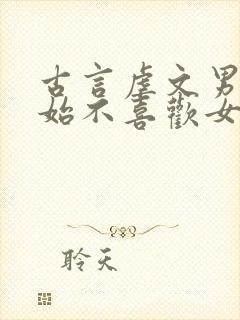 古言虐文男
始不喜歡女
聆天